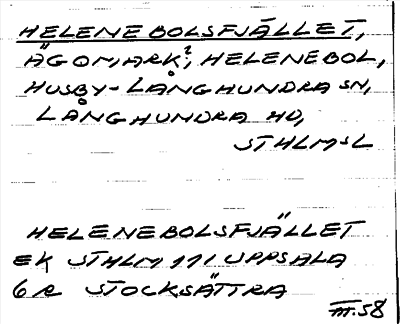 HELENEBOLSFJÄLLET,
ÄGOMARK?, HELENEBOL,
HUSBY-LÅNGHUNDRA SN,
LÅNGHUNDRA HD,
STHLMSL
HELENEBOLSFJÄLLET
EK STHLM 111 UPPSALA
6 R STOCKSÄTTRA
III.58